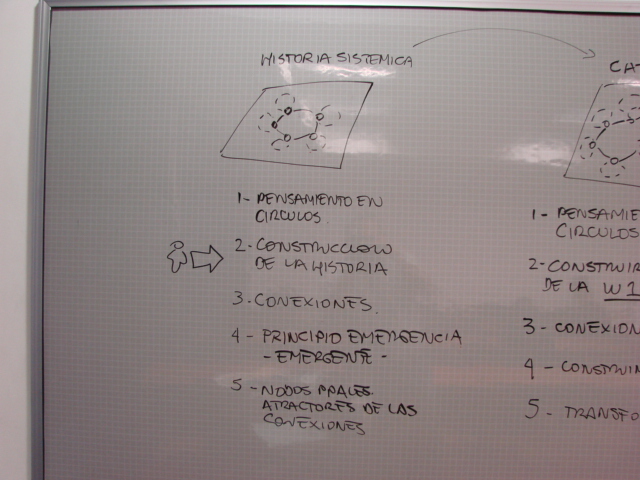 HISTORIA SISTEMICA
1- PENSAMIENTO EN
CIRCULOS.
2- CONSTRUCCION
DE LA HISTORIA
3. CONEXIONES.
4- PRINCIPIO EMERGENCIA
- EMERGENTE -
5- NODOS PPALES.
ATRACTORES DE LAS
CONEXIONES
CAT
1- PENSAMIE
CIRCULOS
2- CONSTRUIR
DE LA W1
3- CONEXION
4- CONSTRUIR
5- TRANSFO